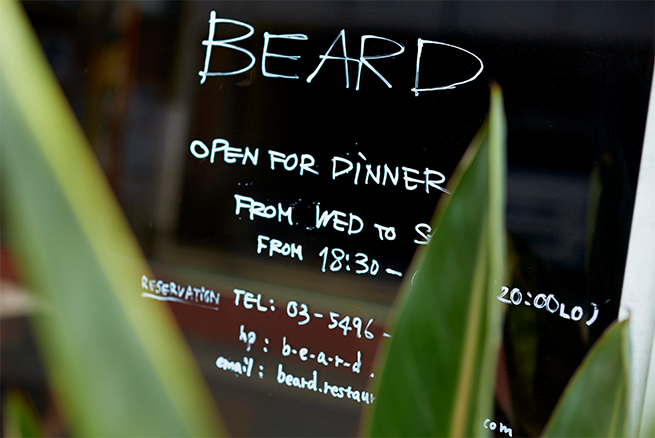 BEARD
OPEN FOR DINNER
FROM WED TO
FROM 18:30- 20:00LO)
RESERVATION TEL: 03-5496-
hp: b-e-a-r-d.
email: beard.restaur com